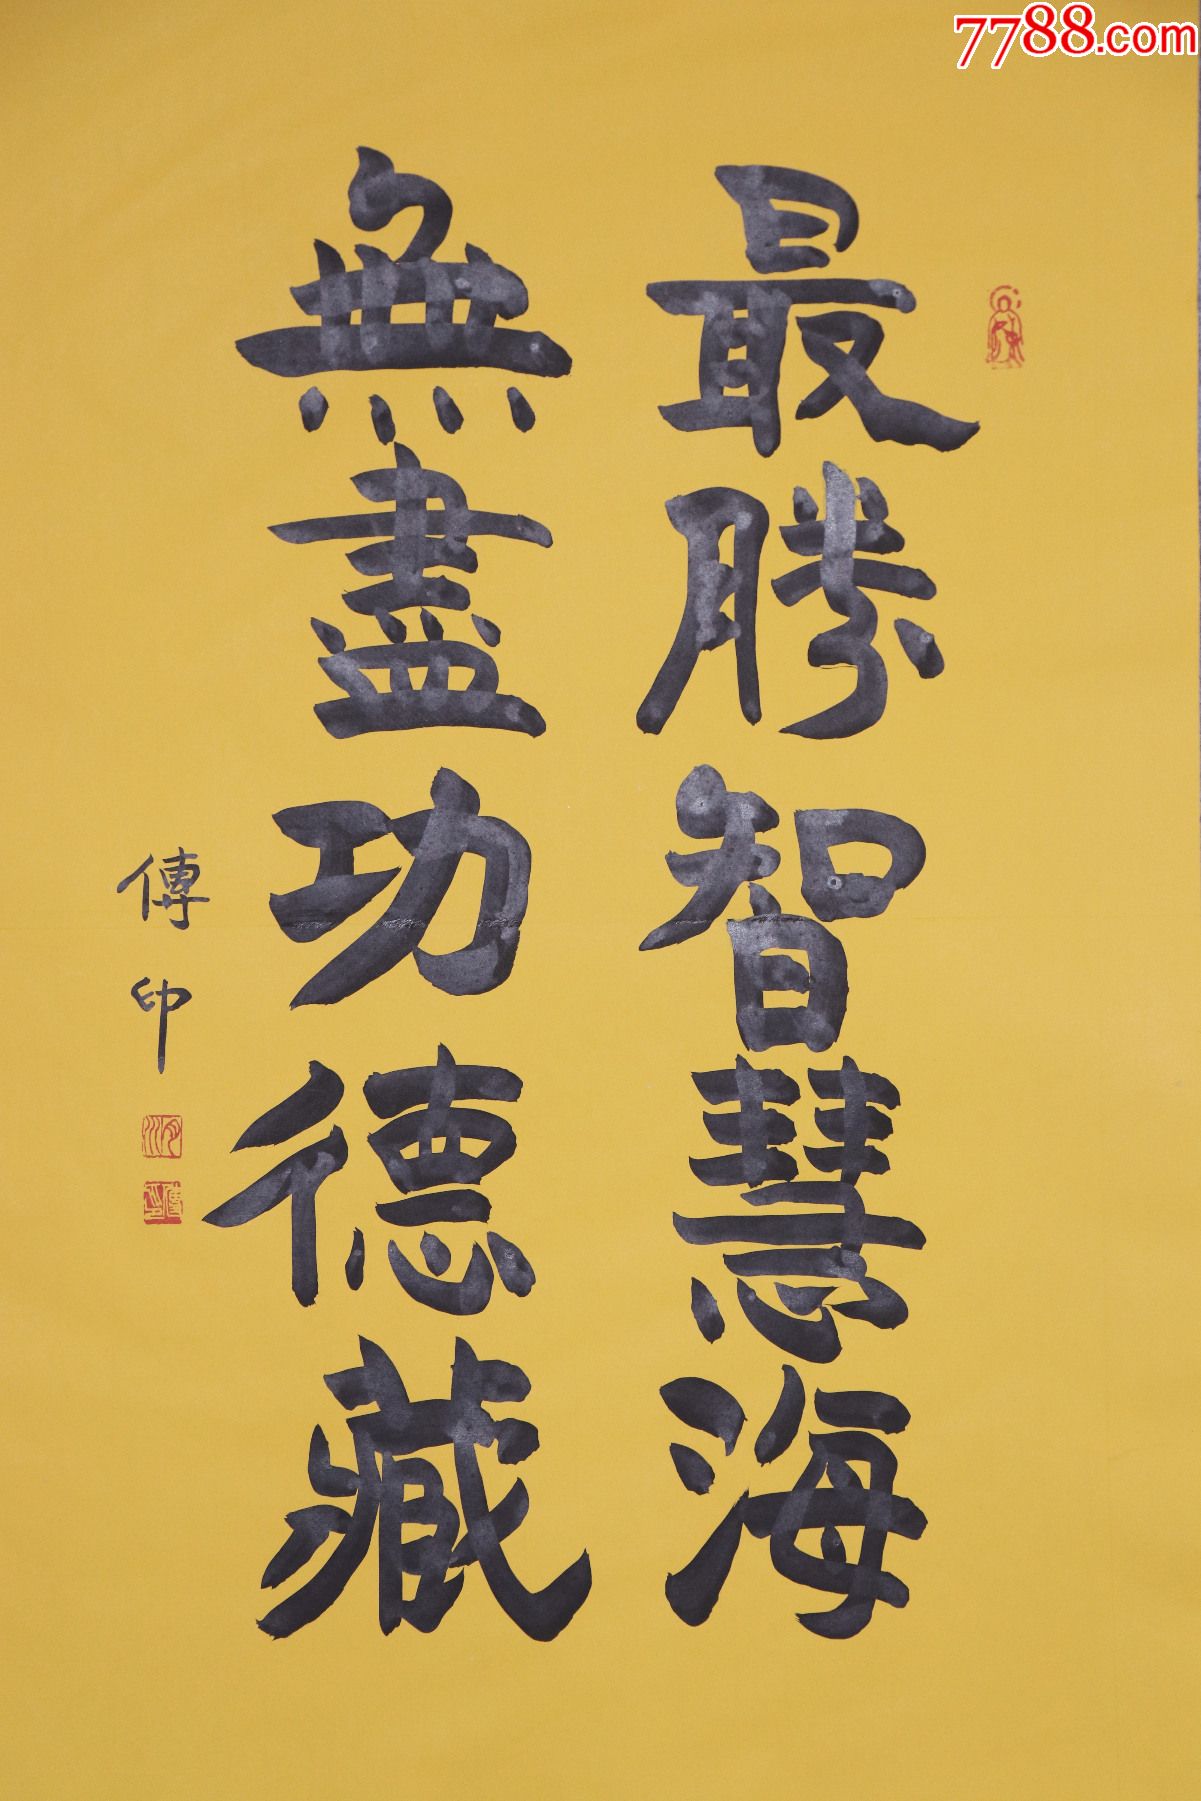 7788.com
最勝智慧海
無盡功德藏
傳印